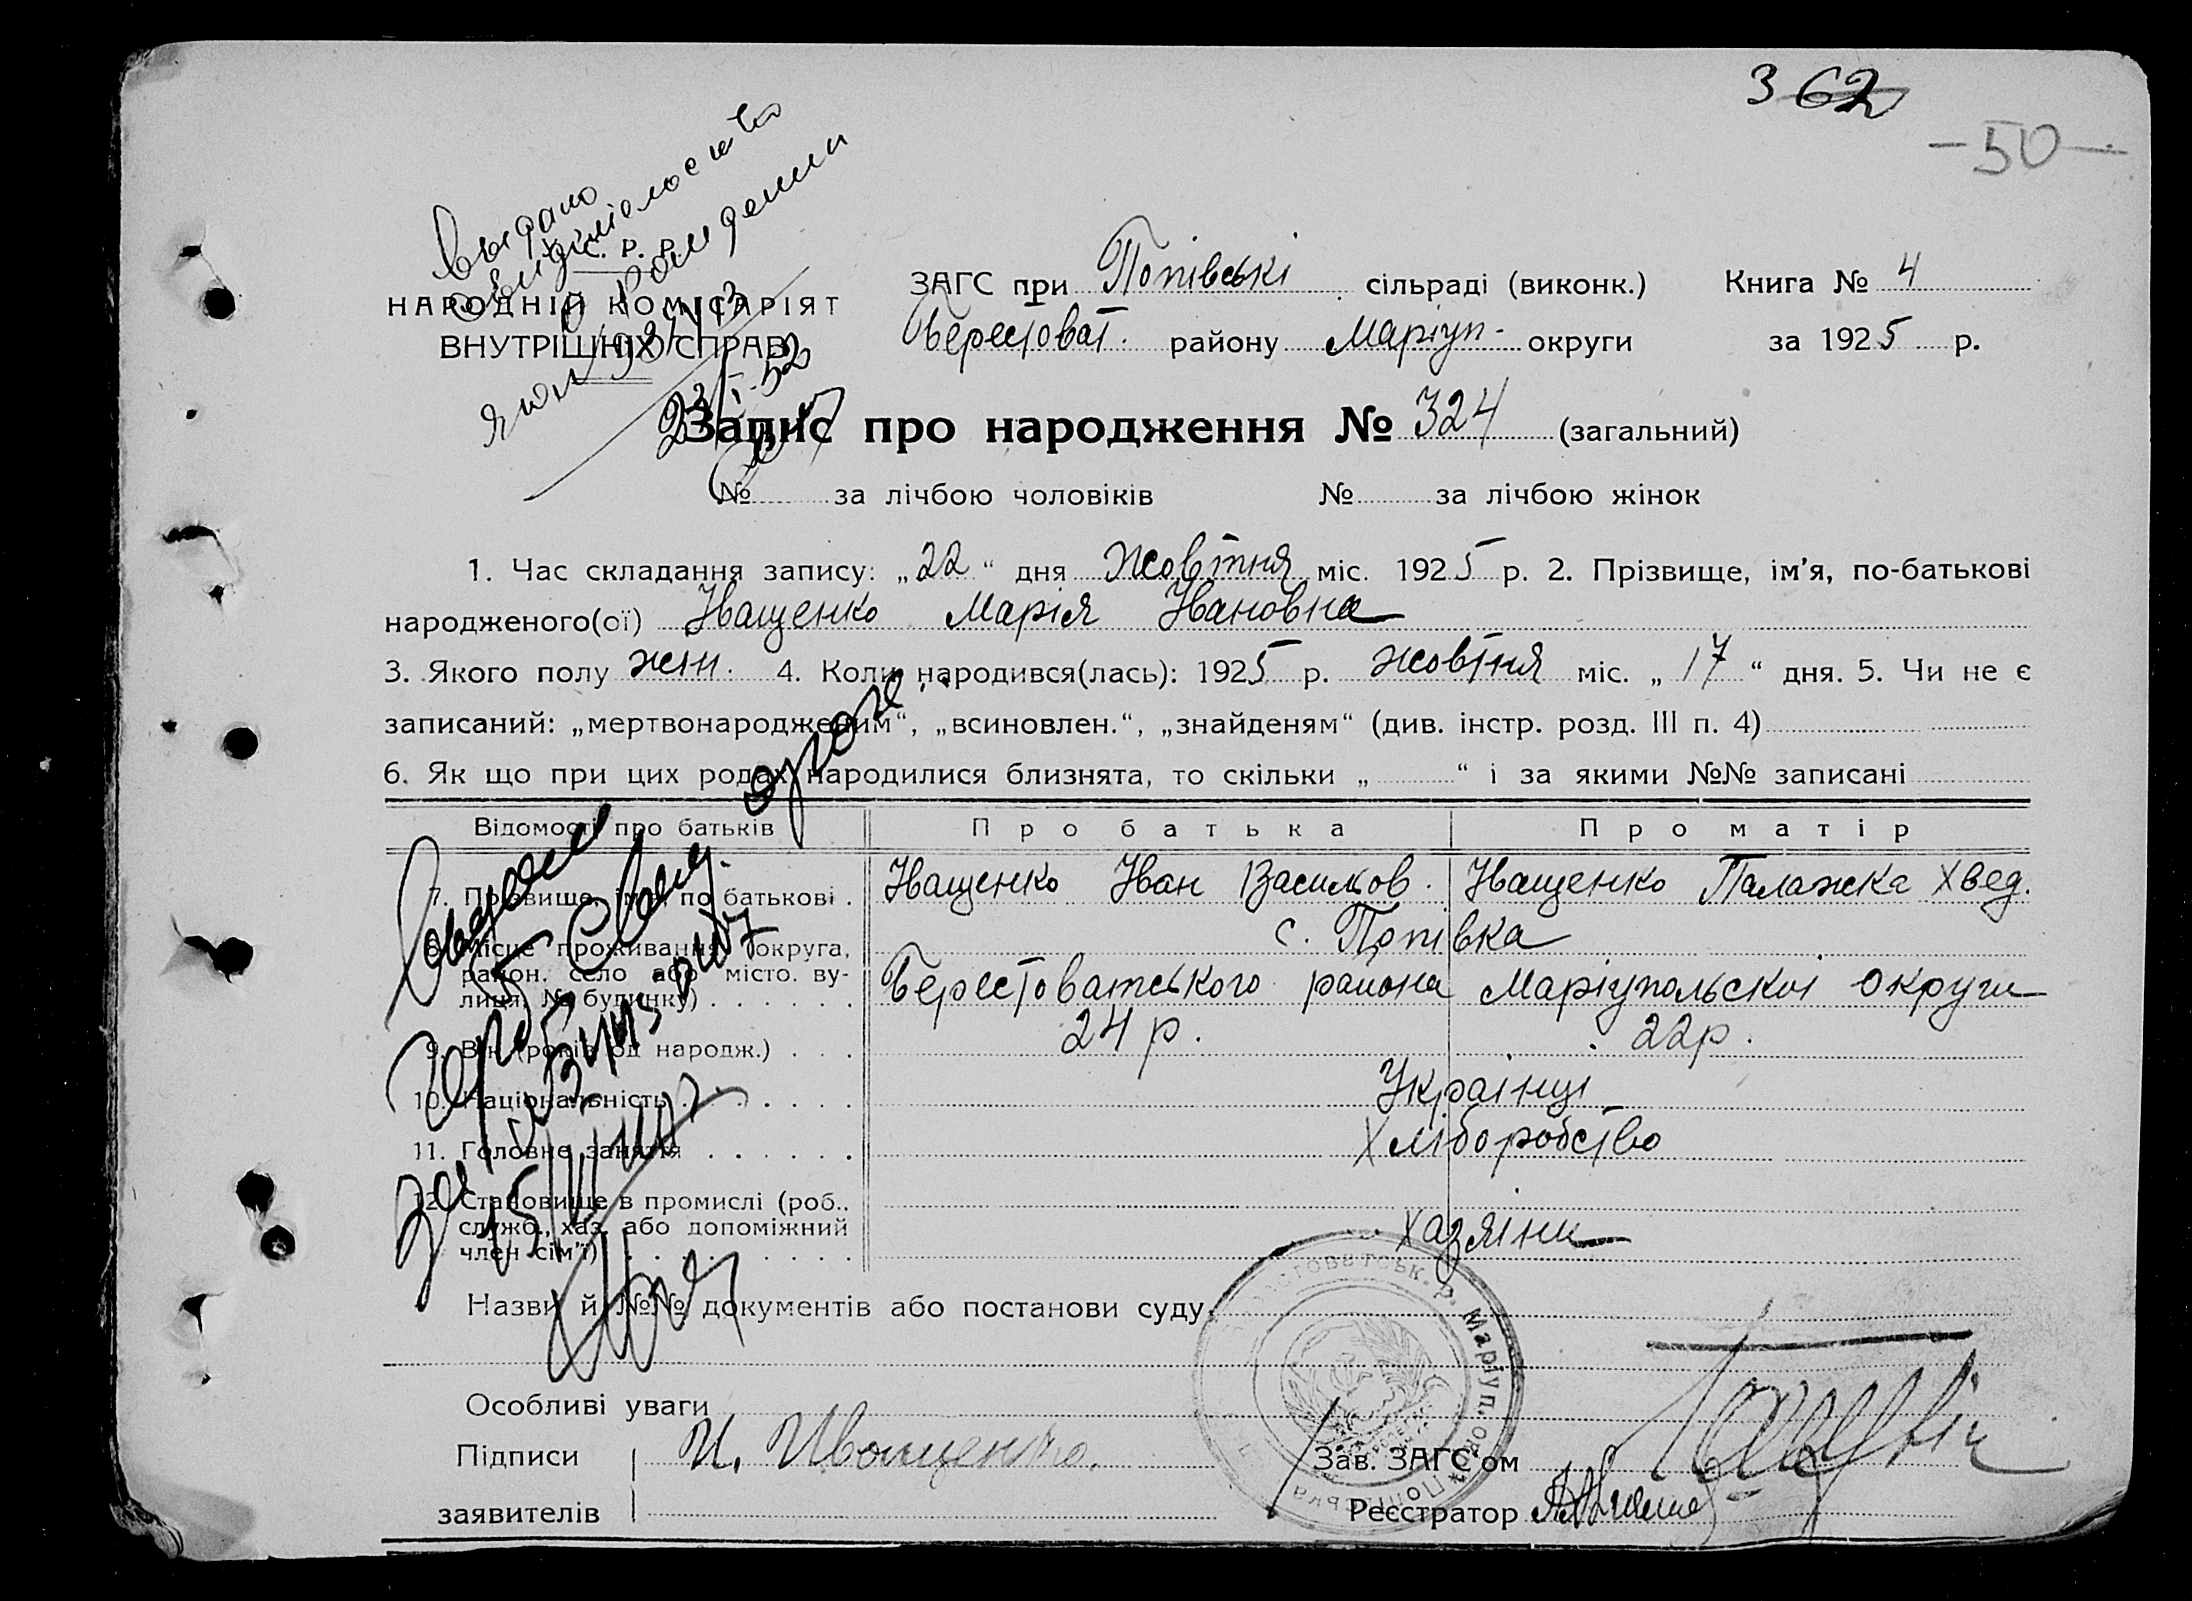 362
-50-
Выдано
свидетельство
о рождении
У. С. Р. Р.
НАРОДНІЙ КОМІСАРІЯТ
ВНУТРІШНІХ СПРАВ
ЗАГС при Попівські сільраді (виконк.) Книга № 4
Берестоват. району Маріуп- округи за 1925 р.
Запис про народження № 324 (загальний)
№ за лічбою чоловіків № за лічбою жінок
1. Час складання запису: „22“ дня Жовтня міс. 1925 р. 2. Прізвище, ім'я, по-батькові
народженого(ої) Іващенко Марія Івановна
3. Якого полу жін. 4. Коли народився(лась): 1925 р. жовтня міс. „17“ дня. 5. Чи не є
записаний: „мертвонародженим“, „всиновлен.“, „знайденям“ (див. інстр. розд. III п. 4)
6. Як що при цих родах народилися близнята, то скільки „ “ і за якими №№ записані
Відомості про батьків Про батька Про матір
7. Прізвище, ім'я, по батькові . Іващенко Іван Васильов. Іващенко Палажка Хвед.
8. Місце проживання (округа, с. Попівка
район. село або місто. ву-
лиця, № будинку) . . . . . . Берестоватського района Маріупольскоі округи
9. Вік (років од народж.) . . . 24 р. 22 р.
10. Національність . . . . . . Українці
11. Головне заняття . . . . . . Хліборобство
12. Становище в промислі (роб..
служб., хаз. або допоміжний Хазяіни
член сім'ї) . . . . . . . . .
Назви й №№ документів або постанови суду
Особливі уваги
Підписи И. Иващенко. Зав. ЗАГС'ом
заявителів Реєстратор